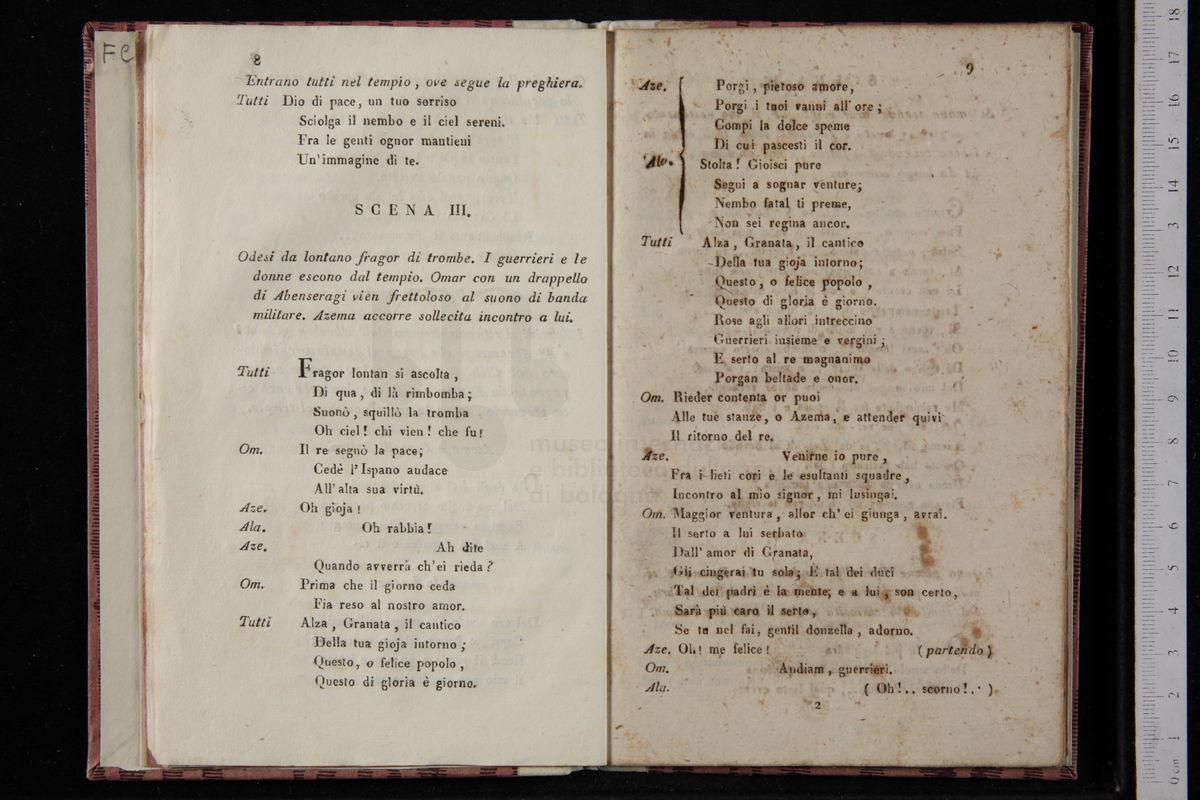 Fe
8
Entrano tutti nel tempio , ove segue la preghiera.
Tutti Dio di pace, un tuo serriso
Sciolga il nembo e il ciel sereni.
Fra le genti ognor mantieni
Un' immagine di te.
SCENA III.
Odesi da lontano fragor di trombe. I guerrieri e le
donne escono dal tempio. Omar con un drappello
di Abenseragi vien frettoloso al suono di banda
militare. Azema accorre sollecita incontro a lui.
Tutti Fragor lontan si ascolta ,
Di qua , di là rimbomba ;
Suonò , squillò la tromba
Oh ciel ! chi vien ! che fu !
Om. Il re segnò la pace;
Cedè l' Ispano audace
All' alta sua virtù.
Aze. Oh gioja !
Ala. Oh rabbia !
Aze. Ah dite
Quando avverrà ch' ei rieda ?
Om. Prima che il giorno ceda
Fia reso al nostro amor.
Tutti Alza , Granata , il cantico
Della tua gioja intorno ;
Questo, o felice popolo ,
Questo di gloria è giorno.
9
Aze. Porgi , pietoso amore,
Porgi i tuoi vanni all' ore ;
Compi la dolce speme
Di cui pascesti il cor.
Ala. Stolta ! Gioisci pure
Segui a sognar venture;
Nembo fatal ti preme,
Non sei regina ancor.
Tutti Alza , Granata , il cantico
Della tua gioja intorno;
Questo , o felice popolo ,
Questo di gloria è giorno.
Rose agli allori intreccino
Guerrieri insieme e vergini ;
E serto al re magnanimo
Porgan beltade e onor.
Om. Rieder contenta or puoi
Alle tue stanze, o Azema, e attender quivi
Il ritorno del re.
Aze. Venirne io pure ,
Fra i lieti cori e le esultanti squadre,
Incontro al mio signor , mi lusingai.
Om. Maggior ventura , allor ch' ei giunga , avrai.
Il serto a lui serbato
Dall' amor di Granata,
Gli cingerai tu sola; E tal dei duci
Tal dei padri è la mente; e a lui , son certo,
Sarà più caro il serto ,
Se tu nel fai, gentil donzella , adorno.
Aze. Oh! me felice ! ( partendo )
Om. Andiam , guerrieri.
Ala. ( Oh !.. scorno !.. )
2
museo internaz
e biblioteca
di bologna
0 cm 1 2 3 4 5 6 7 8 9 10 11 12 13 14 15 16 17 18